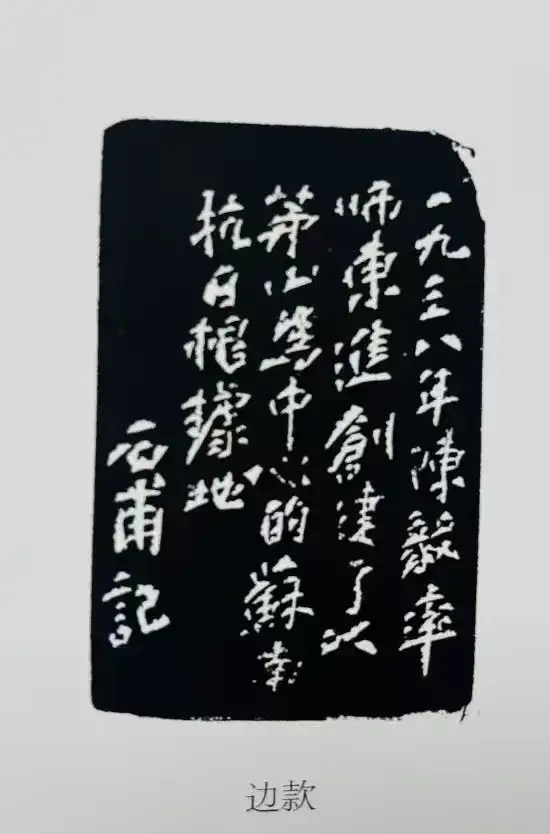 一九三八年陳毅率
師東進創建了以
茅山為中心的蘇南
抗日根據地
石甫記
边款